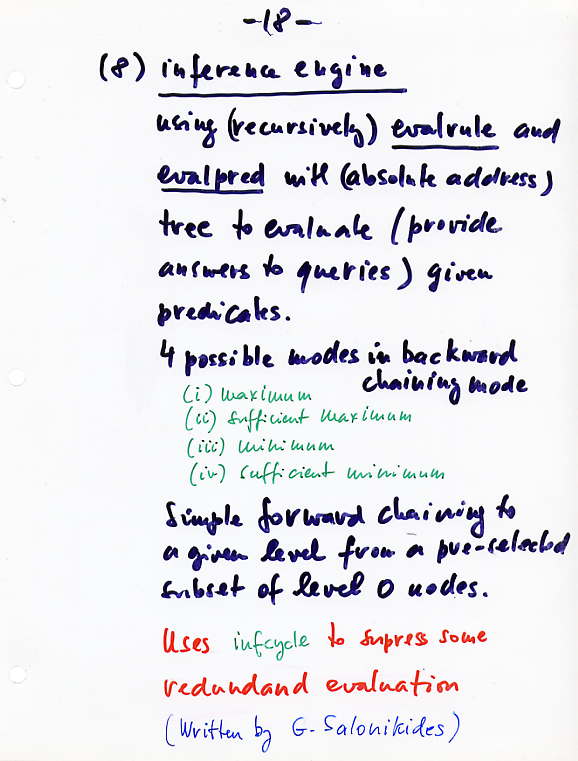 -18-
(8) inference engine
using (recursively) evalrule and
evalpred with (absolute address)
tree to evaluate (provide
answers to queries) given
predicates.
4 possible modes in backward
chaining mode
(i) maximum
(ii) sufficient maximum
(iii) minimum
(iv) sufficient minimum
Simple forward chaining to
a given level from a pre-selected
subset of level 0 nodes.
Uses infcycle to supress some
redundand evaluation
(Written by G. Salonikides)